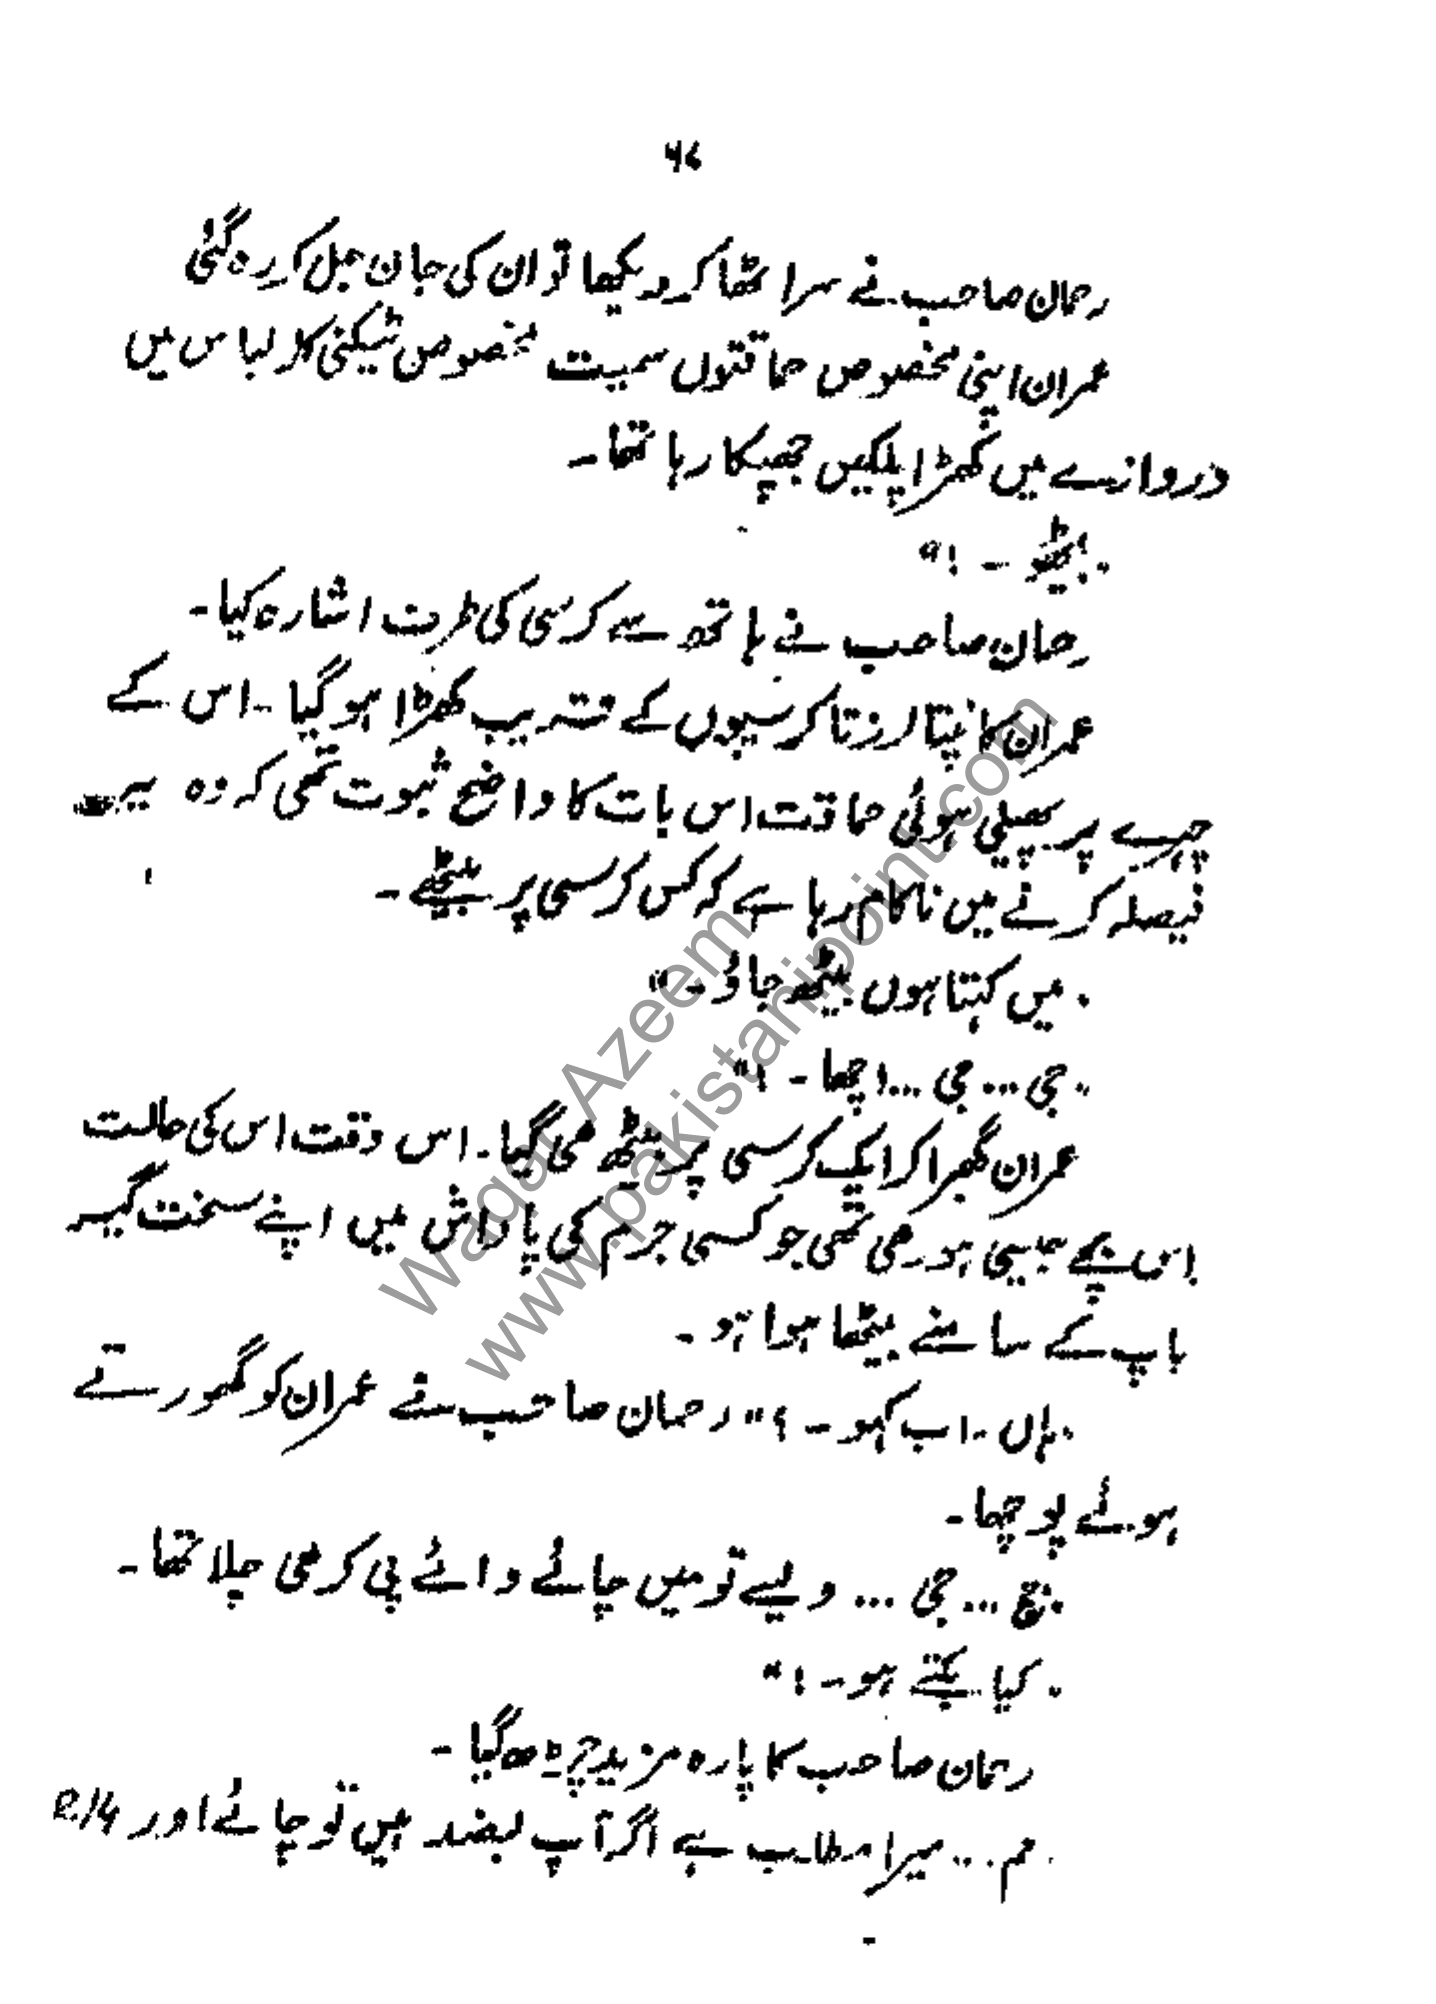 ۶۷
رحمان صاحب نے سر اٹھا کر دیکھا تو ان کی جان جل کر رہ گئی
عمران اپنی مخصوص حماقتوں سمیت مخصوص ٹیکنی کلر لباس میں
دروازے میں کھڑا پلکیں جھپکا رہا تھا۔
"بیٹھو ۔ !"
رحمان صاحب نے ہاتھ سے کرسی کی طرف اشارہ کیا۔
عمران کانپتا لرزتا کرسیوں کے قریب کھڑا ہو گیا ۔ اس کے
چہرے پر پھیلی ہوئی حماقت اس بات کا واضح ثبوت تھی کہ وہ یہ
فیصلہ کرنے میں ناکام رہا ہے کہ کس کرسی پر بیٹھے ۔
"میں کہتا ہوں بیٹھ جاؤ ۔"
"جی ... جی ... اچھا ۔ !"
عمران گھبرا کر ایک کرسی پر بیٹھ ہی گیا ۔ اس وقت اس کی حالت
اس بچے جیسی ہو رہی تھی جو کسی جرم کی پاداش میں اپنے سخت گیر
باپ کے سامنے بیٹھا ہوا ہو ۔
"ہاں ۔ اب کہو ۔ ؟" رحمان صاحب نے عمران کو گھورتے
ہوئے پوچھا ۔
"جج ... جی ... ویسے تو میں چائے وائے پی کر ہی چلا تھا ۔
"کیا بکتے ہو ۔ !"
رحمان صاحب کا پارہ مزید چڑھ گیا ۔
"م ... میرا مطلب ہے اگر آپ بضد ہیں تو چائے اور
Waqar Azeem
www.pakistanipoint.com